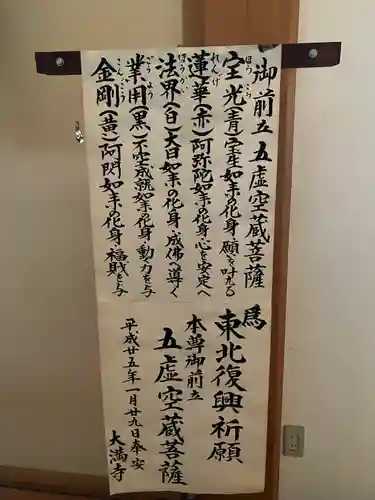 御前立 五虚空蔵菩薩
宝光(青)宝生如来の化身・願を叶える
ほうこう
蓮華(赤)阿弥陀如来の化身 心を安定へ
れんげ
法界(白)大日如来の化身・成佛へ導く
ほうかい
業用(黒)不空成就如来の化身・動力を与
ごうよう
金剛(黄)阿閦如来の化身 福賎を与
こんごう
為 東北復興祈願
本尊御前立
五虚空蔵菩薩
平成廿五年一月廿九日奉安
大満寺